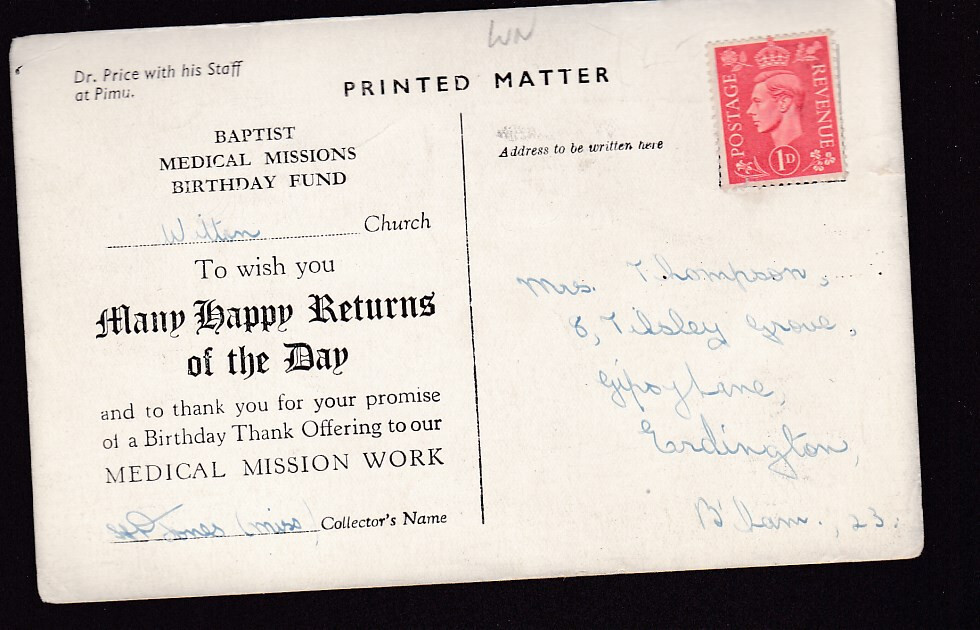 WN
Dr. Price with his Staff
at Pimu.
PRINTED MATTER
BAPTIST
MEDICAL MISSIONS
BIRTHDAY FUND
Witton Church
To wish you
Many Happy Returns
of the Day
and to thank you for your promise
of a Birthday Thank Offering to our
MEDICAL MISSION WORK
Jones (miss) Collector's Name
Address to be written here
POSTAGE
REVENUE
1D
Mrs. Thompson,
8, Tilsley Grove,
Gipsy Lane,
Erdington,
B'ham., 23.